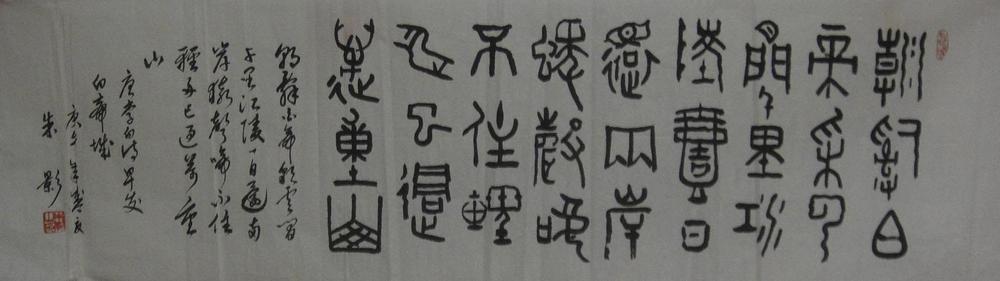 朝辭白
帝彩雲
間千里江
陵壹日
還兩岸
猿聲啼
不住輕
舟已過
萬重山
朝辞白帝彩云间
千里江陵一日還两
岸猿声啼不住
轻舟已过万重
山
唐李白诗早发
白帝城
庚午年春
朱影